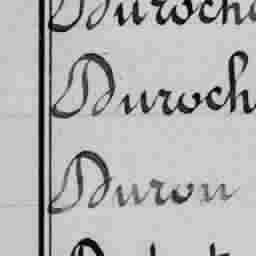 Duroche
Duroch
Duron